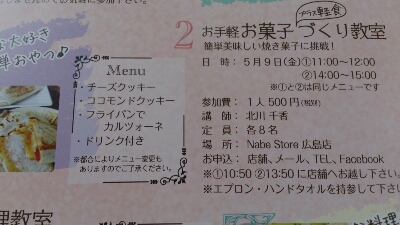 プラス軽食
2 お手軽お菓子づくり教室
簡単美味しい焼き菓子に挑戦!
日 時:5月9日(金)①11:00〜12:00
②14:00〜15:00
※①と②は同じメニューです
参加費:1人500円(税別)
講 師:北川 千香
定 員:各8名
場 所:Nabe Store 広島店
お申込:店舗、メール、TEL、Facebook
※①10:50 ②13:50に店舗へお越し下さい。
※エプロン・ハンドタオルを持参して下さい
大好き
単おやつ♪
Menu
・チーズクッキー
・ココモンドクッキー
・フライパンで
カルツォーネ
・ドリンク付き
※都合によりメニュー変更も
ありますのでご了承ください。
理教室